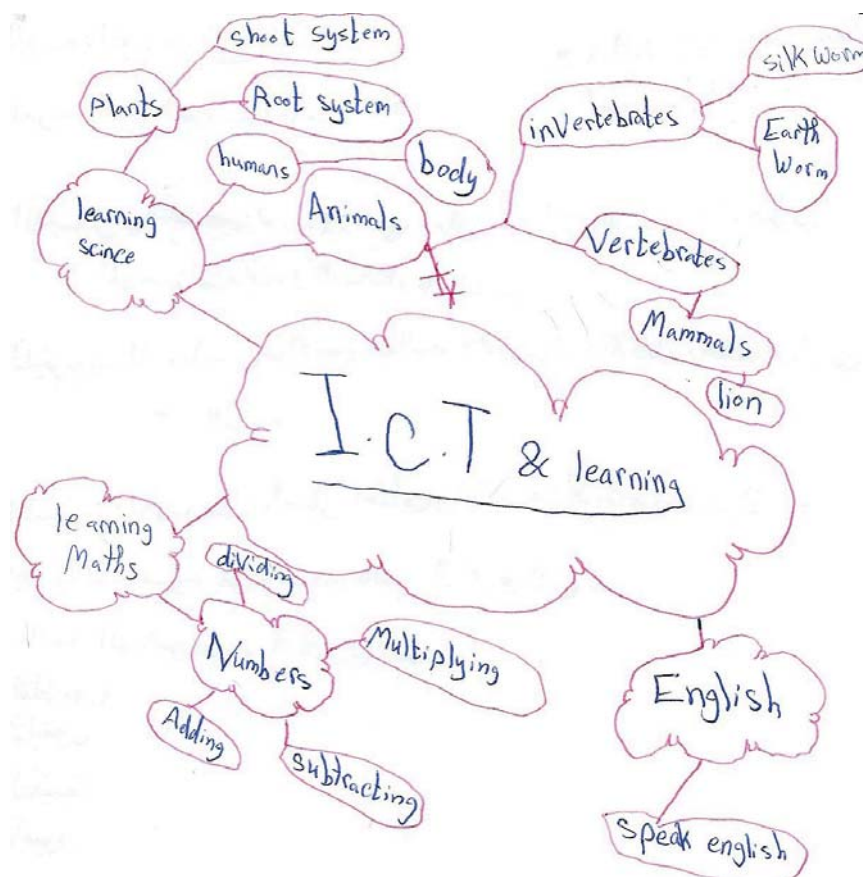 shoot system
plants
Root system
humans
body
learning
scince
Animals
inVertebrates
silk worm
Earth
Worm
Vertebrates
Mammals
lion
I.C.T & learning
learning
Maths
dividing
Numbers
Multiplying
Adding
subtracting
English
speak english